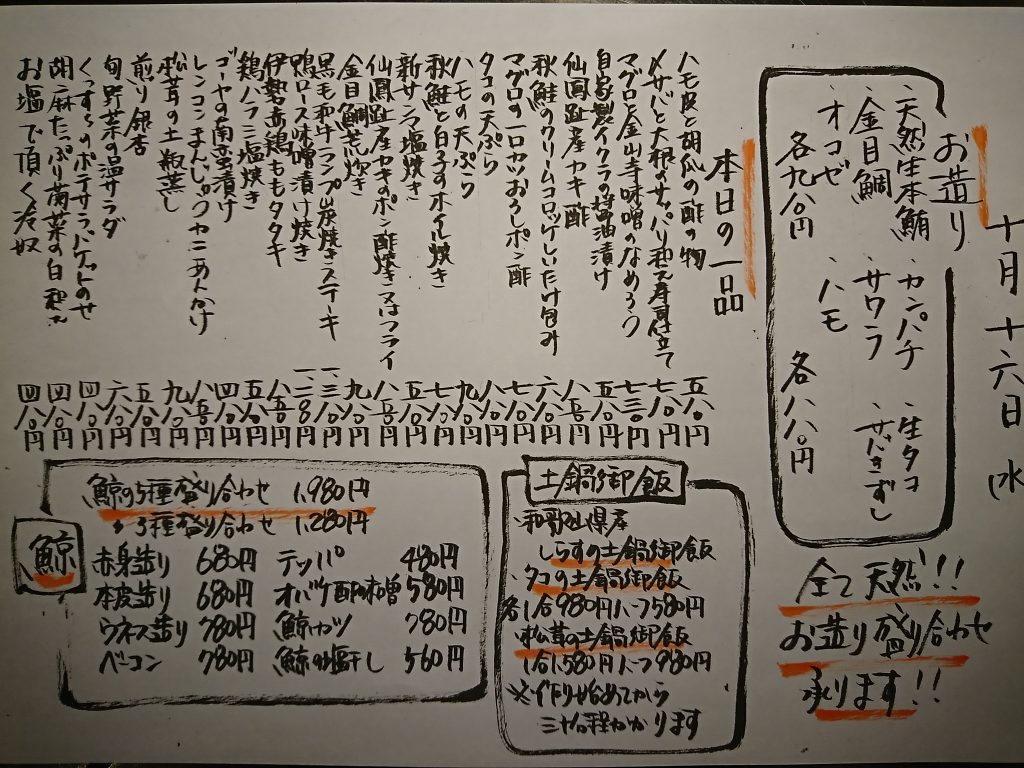 十月十六日 水
お造り
・天然生本鮪 ・カンパチ ・生タコ
・金目鯛 ・サワラ ・サバきずし
・オコゼ ・ハモ
各九八〇円 各八八〇円
全て天然!!
お造り盛り合わせ
承ります!!
本日の一品
ハモ皮と胡瓜の酢の物 五八〇円
〆サバと大根のサッパリ和え 七八〇円
マグロと金山寺味噌のなめろう 七三〇円
自家製イクラの醤油漬け 五八〇円
仙鳳趾産カキ酢 八五〇円
秋鮭のクリームコロッケしいたけ包み 六八〇円
マグロの一口カツおろしポン酢 七八〇円
タコの天ぷら 八八〇円
ハモの天ぷら 九八〇円
秋鮭と白子のホイル焼き 七八〇円
新サンマ塩焼き
仙鳳趾産カキのポン酢焼き又はフライ 八五〇円
金目鯛荒炊き 九八〇円
黒毛和牛ランプ炭焼きステーキ
鴨ロース味噌漬け焼き
伊勢赤鶏ももタタキ 八五〇円
鶏ハラミ塩焼き 五八〇円
ゴーヤの南蛮漬け 四八〇円
レンコンまんじゅうカニあんかけ 八五〇円
松茸の土瓶蒸し 九八〇円
煎り銀杏 五八〇円
旬野菜の温サラダ 六八〇円
くんすらのポテサラバゲットのせ 四八〇円
胡麻たっぷり菊菜の白和え 四八〇円
お塩で頂く冷奴 四八〇円
土鍋御飯
・和歌山県産
しらすの土鍋御飯
・タコの土鍋御飯
各1合980円ハーフ580円
・松茸の土鍋御飯
1合1,580円ハーフ980円
※作り始めてから
三十分程かかります
鯨
鯨の5種盛り合わせ 1,980円
〃 3種盛り合わせ 1,280円
赤身造り 680円 テッパ 480円
本皮造り 680円 オバケ酢味噌 580円
ウネス造り 780円 鯨カツ 780円
ベーコン 780円 鯨の塩干し 560円